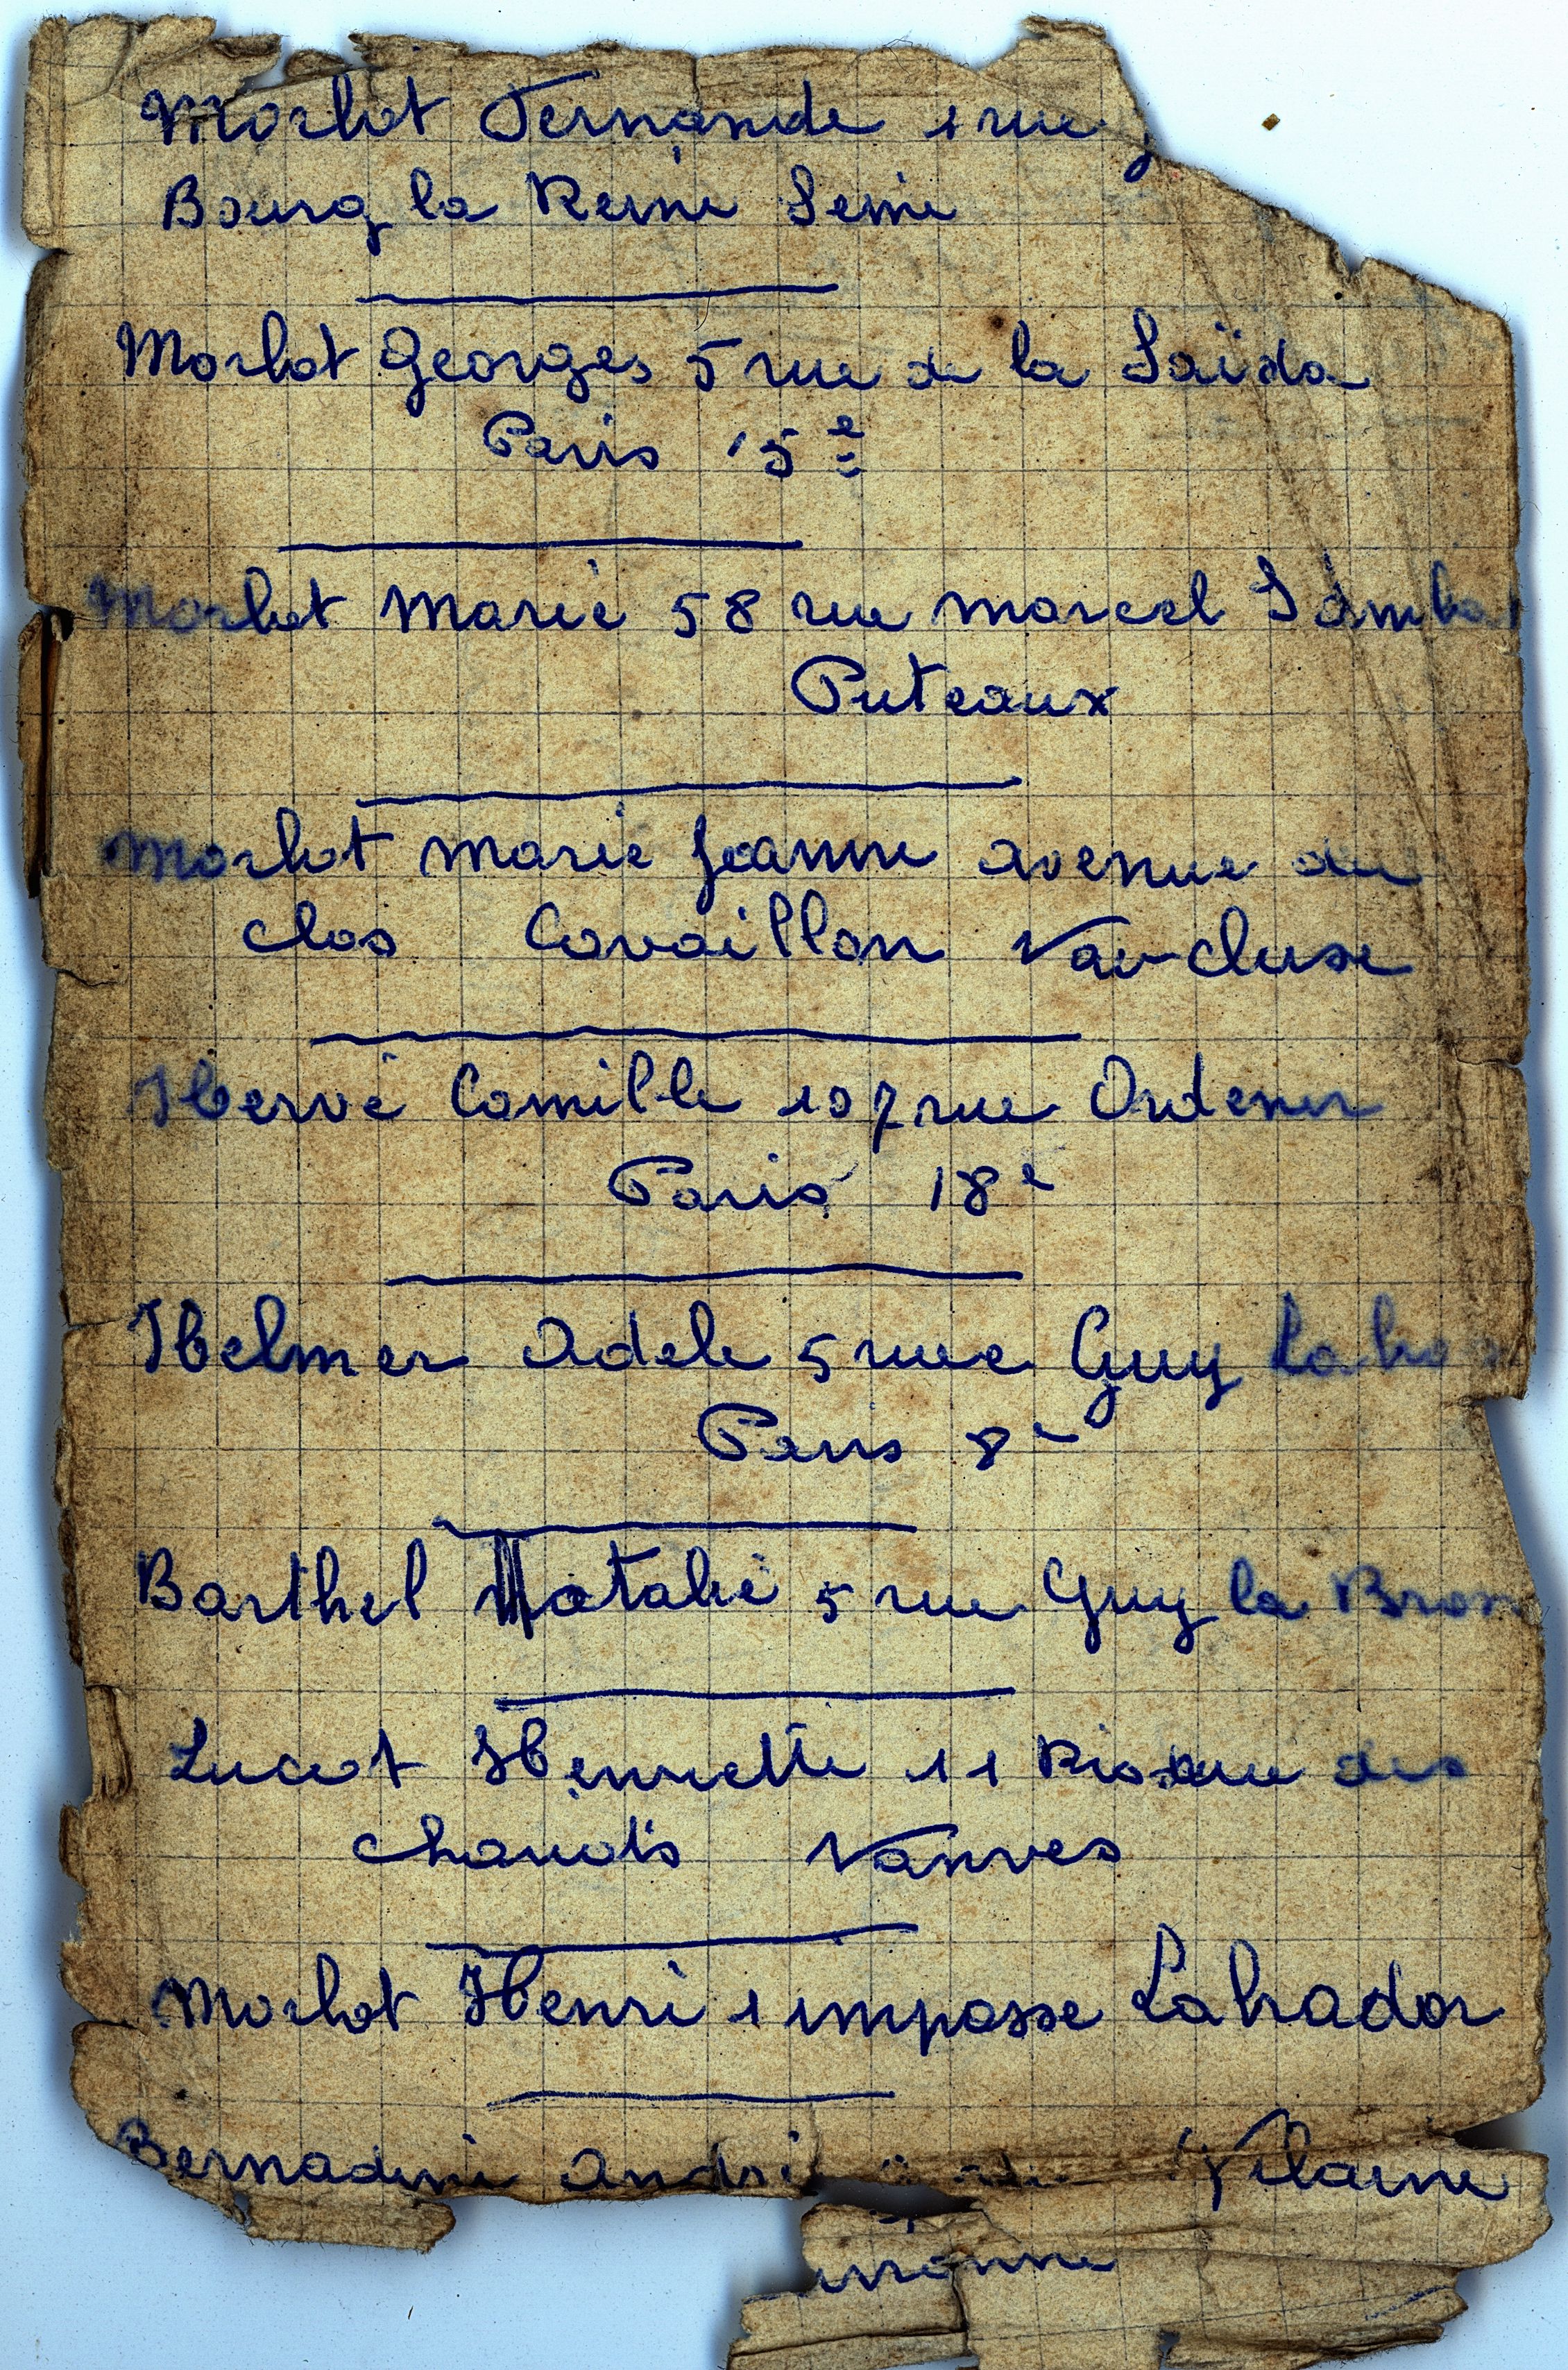 Morlot Fernande 1 rue
Bourg la Reine Seine
Morlot Georges 5 rue de la Saïda
Paris 15e
Morlot Marie 58 rue marcel Samba
Puteaux
Morlot Marie Jeanne avenue du
clos Cavaillon Vaucluse
Hervé Camille 107 rue Ordener
Paris 18e
Helmer Adele 5 rue Guy
Paris 8e
Barthel Natalie 5 rue Guy la Bros
Lucot Henriette 11 des
chariots Vanves
Morlot Henri 1 impasse Labrador
Bernadini André Vilaine